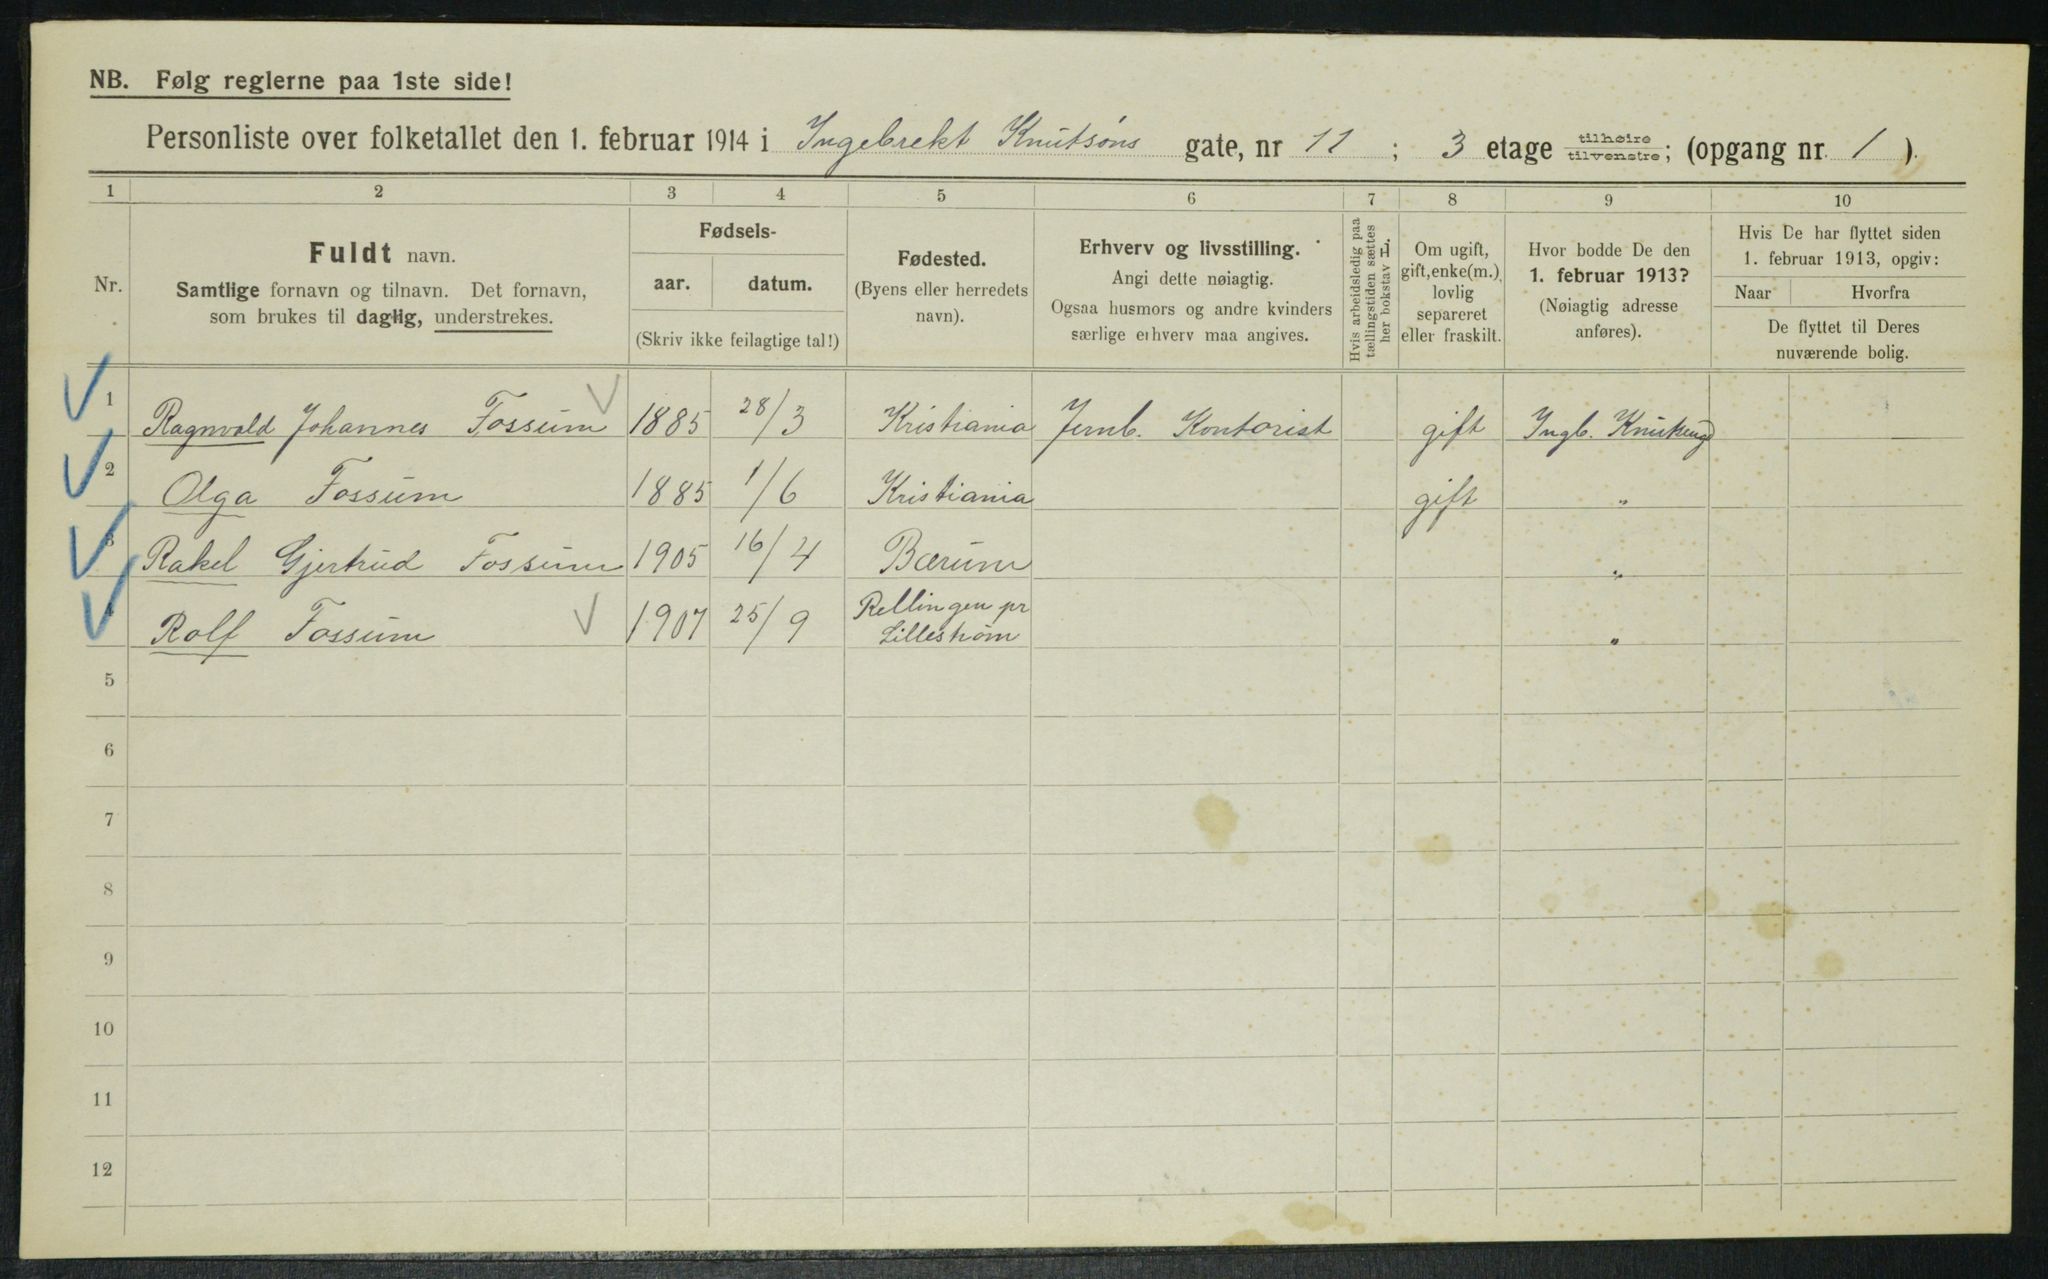 NB. Følg reglerne paa 1ste side!
Personliste over folketallet den 1. februar 1914 i Ingebrekt Knutsøns gate, nr 11 ; 3 etage tilhøire tilvenstre; (opgang nr. 1 ).
1 2 3 4 5 6 7 8 9 10
Nr.
Fuldt navn.
Samtlige fornavn og tilnavn. Det fornavn,
som brukes til daglig, understrekes.
Fødsels-
aar. datum.
(Skriv ikke feilagtige tal!)
Fødested.
(Byens eller herredets
navn).
Erhverv og livsstilling.
Angi dette nøiagtig.
Ogsaa husmors og andre kvinders
særlige erhverv maa angives.
Hvis arbeidsledig paa
tællingstiden sættes
her bokstav L.
Om ugift,
gift, enke(m.),
lovlig
separeret
eller fraskilt.
Hvor bodde De den
1. februar 1913?
(Nøiagtig adresse
anføres).
Hvis De har flyttet siden
1. februar 1913, opgiv:
Naar Hvorfra
De flyttet til Deres
nuværende bolig.
1 Ragnvald Johannes Fossum 1885 28/3 Kristiania Jernb. Kontorist gift Ingb.
2 Olga Fossum 1885 1/6 Kristiania gift "
3 Rakel Gjertrud Fossum 1905 16/4 Bærum "
4 Rolf Fossum 1907 25/9 Rellingen pr
Lillestrøm "
5
6
7
8
9
10
11
12